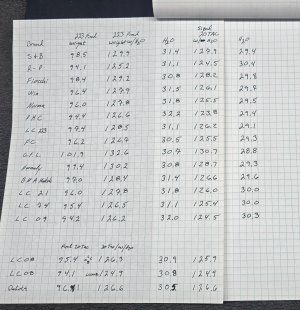 223 Fired 223 Fired Sized
Brand weight weight w/H₂O H₂O 20 TAC w/H₂O H₂O
S+B 98.5 129.9 31.4 127.9 29.4
R-P 94.1 125.2 31.1 124.5 30.4
Fiocchi 98.4 129.2 30.8 128.2 29.8
Win 96.4 127.9 31.5 126.1 29.7
Norma 96.0 127.8 31.8 125.5 29.5
PMC 94.4 126.6 32.2 123.8 29.4
LC 223 97.4 128.5 31.1 126.2 29.1
FC 96.2 126.7 30.5 125.5 29.3
G.F.L. 101.9 132.6 30.7 130.7 28.8
Hornady 99.4 130.2 30.8 128.7 29.3
97.0 128.4 31.4 126.6 29.6
LC 21 96.0 127.8 31.8 126.0 30.0
LC 74 95.4 126.5 31.1 125.4 30.0
LC 09 94.2 126.2 32.0 124.5 30.3
Fired 20 TAC 20 TAC w/H₂O
LC08 95.4 126.3 30.9 125.9
LC08 94.1 124.9 30.8 124.9
96.1 126.6 30.5 126.6